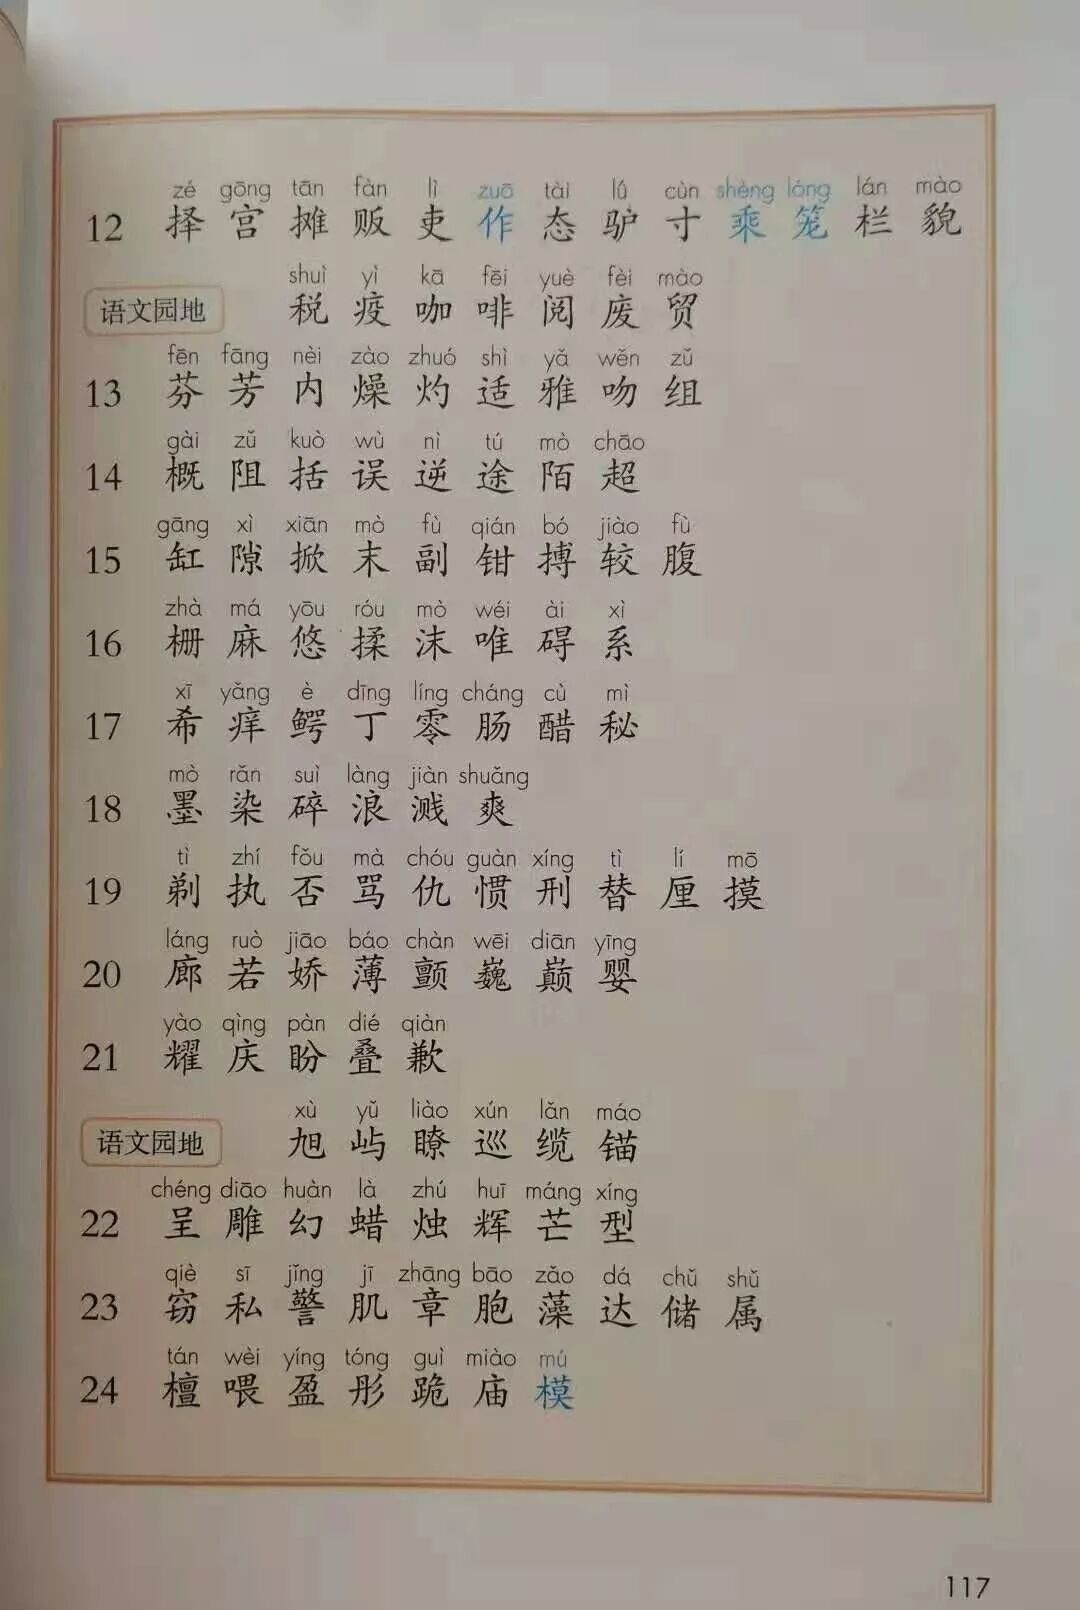 zé gōng tān fàn lì zuō tài lǘ cùn shèng lóng lán mào
12 择 宫 摊 贩 吏 作 态 驴 寸 乘 笼 栏 貌
shuì yì kā fēi yuè fèi mào
语文园地 税 疫 咖 啡 阅 废 贸
fēn fāng nèi zào zhuó shì yǎ wěn zǔ
13 芬 芳 内 燥 灼 适 雅 吻 组
gài zǔ kuò wù nì tú mò chāo
14 概 阻 括 误 逆 途 陌 超
gāng xì xiān mò fù qián bó jiào fù
15 缸 隙 掀 末 副 钳 搏 较 腹
zhà má yōu róu mò wéi ài xì
16 栅 麻 悠 揉 沫 唯 碍 系
xī yǎng è dīng líng cháng cù mì
17 希 痒 鳄 丁 零 肠 醋 秘
mò rǎn suì làng jiàn shuǎng
18 墨 染 碎 浪 溅 爽
tì zhí fǒu mà chóu guàn xíng tì lí mō
19 剃 执 否 骂 仇 惯 刑 替 厘 摸
láng ruò jiāo báo chàn wēi diān yīng
20 廊 若 娇 薄 颤 巍 巅 婴
yào qìng pàn dié qiàn
21 耀 庆 盼 叠 歉
xù yǔ liào xún lǎn máo
语文园地 旭 屿 瞭 巡 缆 锚
chéng diāo huàn là zhú huī máng xíng
22 呈 雕 幻 蜡 烛 辉 芒 型
qiè sī jǐng jī zhāng bāo zǎo dá chǔ shǔ
23 窃 私 警 肌 章 胞 藻 达 储 属
tán wèi yíng tóng guì miào mú
24 檀 喂 盈 彤 跪 庙 模
117